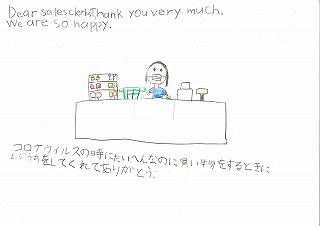 Dear salesclerks,Thank you very much.
We are so happy.
コロナウイルスの時にたいへんなのに買い物をするときに
レジうちをしてくれてありがとう。